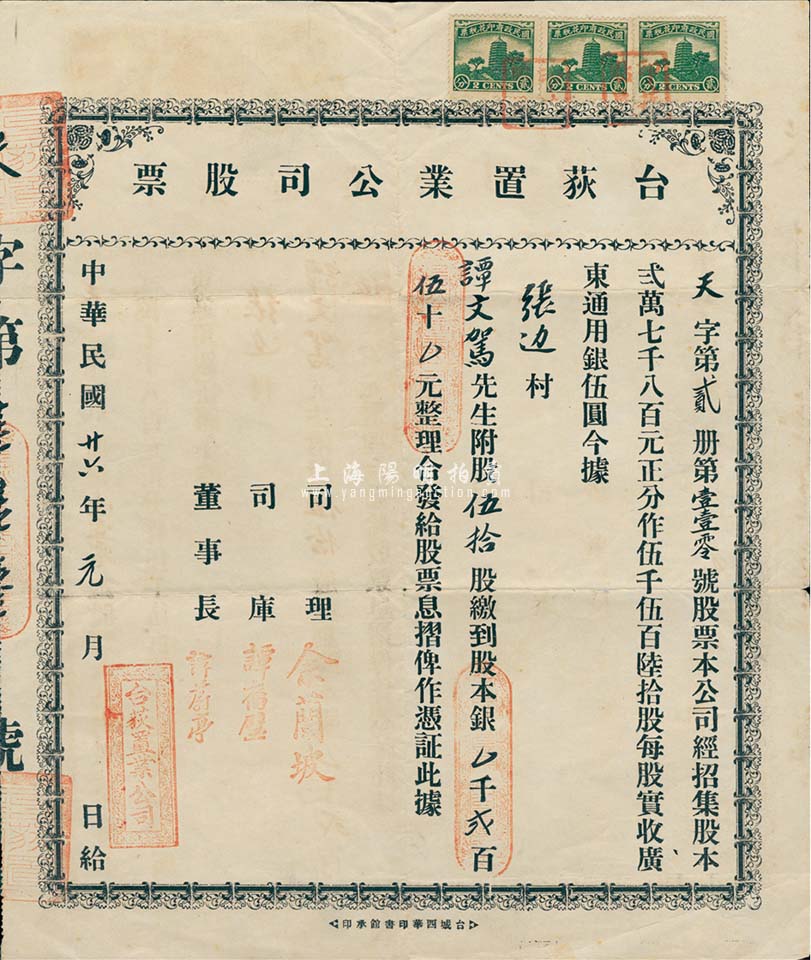 國民政府印花稅票
貳 2 CENTS 分
國民政府印花稅票
貳 2 CENTS 分
國民政府印花稅票
貳 2 CENTS 分
台荻置業公司股票
天字第貳册第壹壹零號股票本公司經招集股本
弍萬七千八百元正分作伍千伍百陸拾股每股實收廣
東通用銀伍圓今據
張边村
譚文駕先生附股伍拾股繳到股本銀〇千弍百
伍十〇元整理合發給股票息摺俾作憑証此據
司理 余蘭坡
司庫
董事長
台荻置業公司
中華民國廿六年元月 日給
天字第 號
台城西華印書館承印
上海陽明拍賣
www.yangmingauction.com